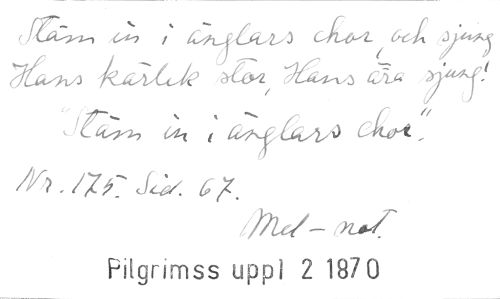 Stäm in i änglars chor, och sjung
Hans kärlek stor, Hans ära sjung!
"Stäm in i änglars chor".
Nr. 175. Sid. 67.
Mel-not.
Pilgrimss uppl 2 1870